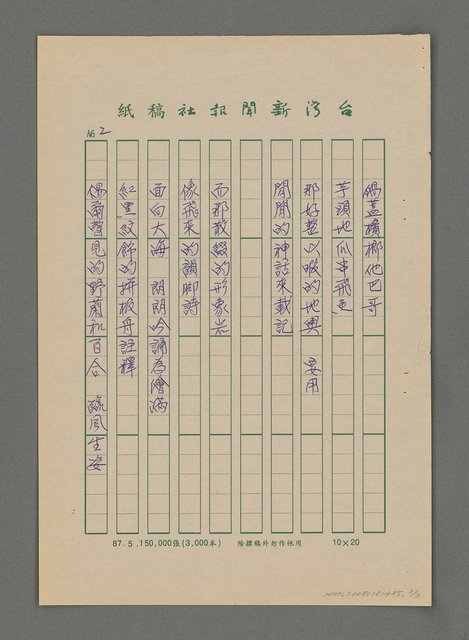 台灣新聞報社稿紙
№ 2
鍋蓋檳榔他巴哥
芋頭地瓜串飛魚
那好整以暇的地輿　要用
閒閒的神話來載記
而那散綴的形象岩
像飛來的讚腳詩
面向大海　朗朗吟誦為澮滿
紅黑紋飾的拼板舟註釋
偶爾瞥見的野菊和百合　臨風生姿
87.5.150,000張(3,000本)
除撰稿外勿作他用
10×20